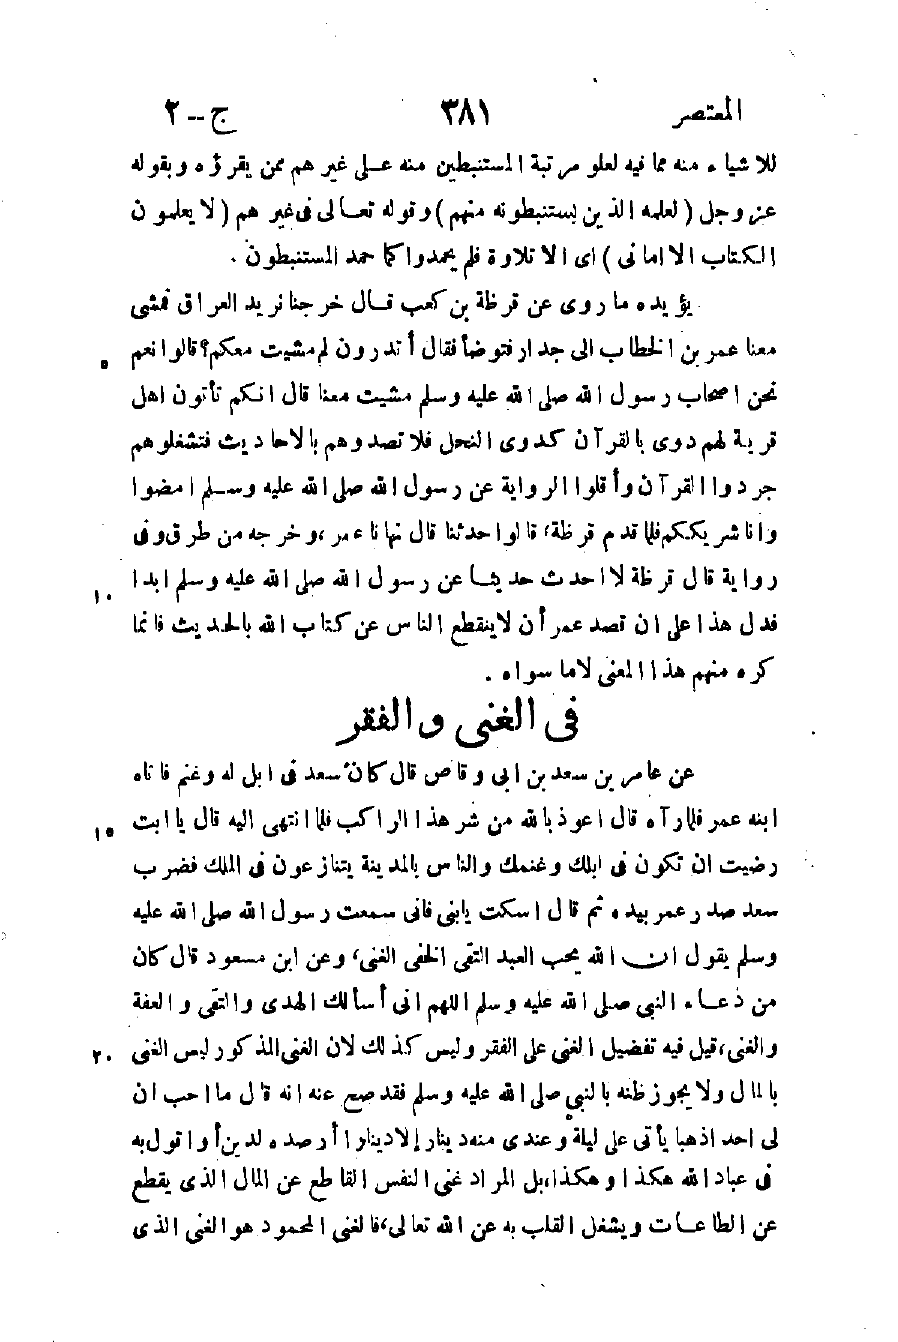 المعتصر ٣٨١ ج--٢
للاشياء منه مما فيه لعلو مرتبة المستنبطين منه على غيرهم ممن يقرؤه وبقوله
عز وجل (لعلمه الذين يستنبطونه منهم) وقوله تعالى فى غيرهم (لا يعلمون
الكتاب الا امانى) اى الا تلاوة فلم يحمدوا كما حمد المستنبطون .
يؤيده ما روى عن قرظة بن كعب قال خرجنا نريد العراق فمشى
معنا عمر بن الخطاب الى جدار فتوضأ فقال أتدرون لم مشيت معكم؟ قالوا نعم ٥
نحن اصحاب رسول الله صلى الله عليه وسلم مشيت معنا قال انكم تأتون اهل
قرية لهم دوى بالقرآن كدوى النحل فلا تصدوهم بالاحاديث فتشغلوهم
جردوا القرآن وأقلوا الرواية عن رسول الله صلى الله عليه وسلم امضوا
وانا شريككم فلما قدم قرظة، قالوا حدثنا قال نهانا عمر ،وخرجه من طرق وفى
رواية قال قرظة لا احدث حديثا عن رسول الله صلى الله عليه وسلم ابدا ١٠
فدل هذا على ان قصد عمر أن لا ينقطع الناس عن كتاب الله بالحديث فانما
كره منهم هذا المعنى لا ما سواه .
فى الغنى والفقر
عن عامر بن سعد بن ابى وقاص قال كان سعد فى ابل له وغنم فاتاه
ابنه عمر فلما رآه قال اعوذ بالله من شر هذا الراكب فلما انتهى اليه قال يا ابت ١٥
رضيت ان تكون فى ابلك وغنمك والناس بالمدينة يتنازعون فى الملك فضرب
سعد صدر عمر بيده ثم قال اسكت يا بنى فانى سمعت رسول الله صلى الله عليه
وسلم يقول ان الله يحب العبد التقى الخفى الغنى، وعن ابن مسعود قال كان
من دعاء النبى صلى الله عليه وسلم اللهم انى أسألك الهدى والتقى والعفة
والغنى، قيل فيه تفضيل الغنى على الفقر وليس كذلك لان الغنى المذكور ليس الغنى ٢٠
بالمال ولا يجوز ظنه بالنبى صلى الله عليه وسلم فقد صح عنه انه قال ما احب ان
لى احد اذهبا يأتى على ليلة وعندى منه دينار إلا دينارا أرصده لدين أو اقول به
فى عباد الله هكذا وهكذا، بل المراد غنى النفس القاطع عن المال الذى يقطع
عن الطاعات ويشغل القلب به عن الله تعالى، فالغنى المحمود هو الغنى الذى